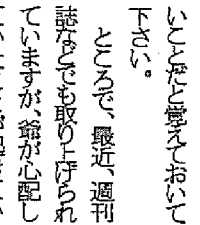 いことだと覚えておいて
下さい。
ところで、最近、週刊
誌などでも取り上げられ
ていますが、爺が心配し